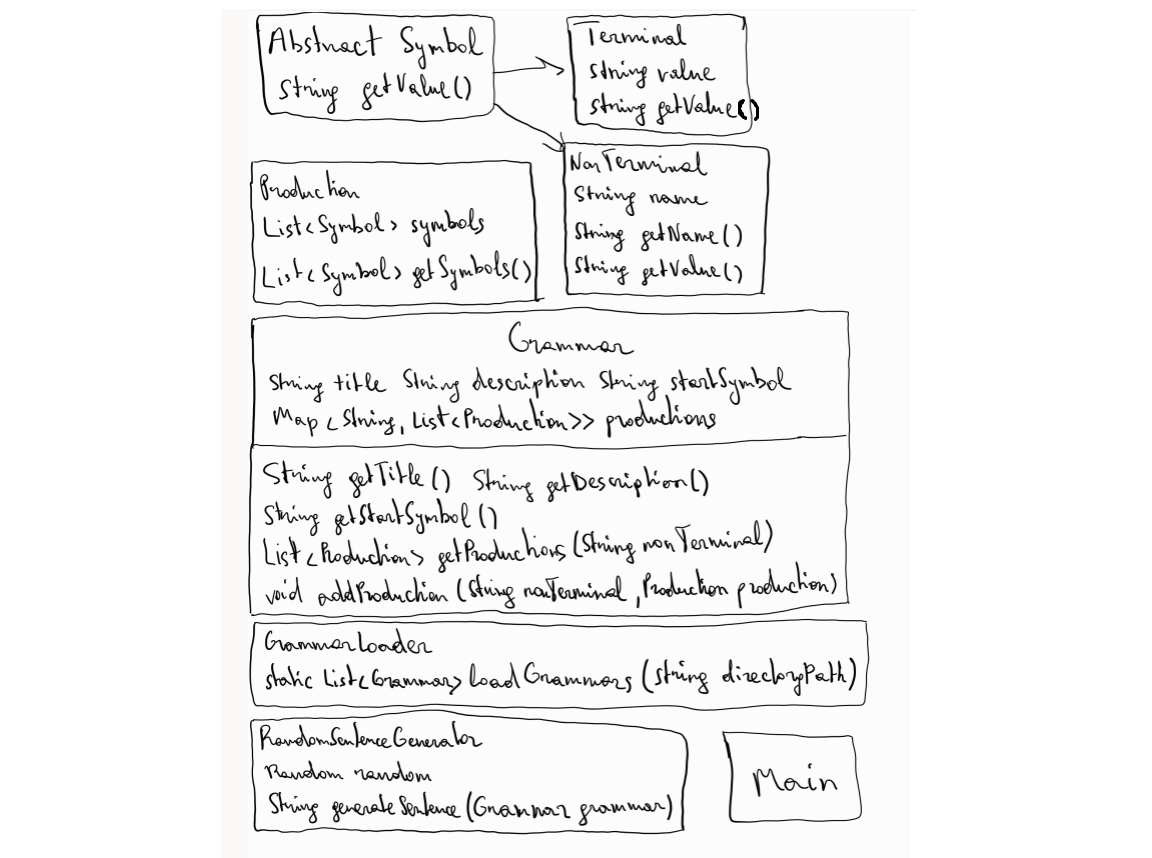 Abstract Symbol
String getValue()
Terminal
String value
String getValue()
NonTerminal
String name
String getName()
String getValue()
Production
List<Symbol> symbols
List<Symbol> getSymbols()
Grammar
String title String description String startSymbol
Map<String, List<Production>> productions
String getTitle() String getDescription()
String getStartSymbol()
List<Production> getProductions(String nonTerminal)
void addProduction(String nonTerminal, Production production)
GrammarLoader
static List<Grammar> loadGrammars (String directoryPath)
RandomSentenceGenerator
Random random
String generateSentence(Grammar grammar)
Main